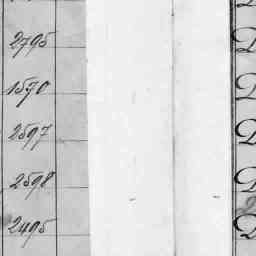 2795 D
1570 D
2597 D
2598 D
2495 D